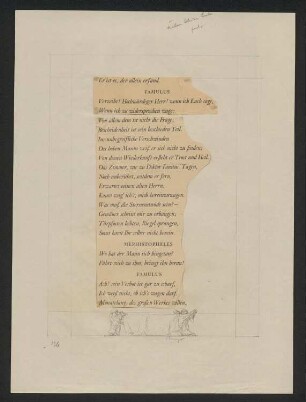 Er ist es, der allein erfand.
FAMULUS
Verzeiht! Hochwürdiger Herr! wenn ich Euch sage,
Wenn ich zu widersprechen wage:
Von allem dem ist nicht die Frage,
Bescheidenheit ist sein beschieden Teil.
Ins unbegreifliche Verschwinden
Des hohen Manns weiß er sich nicht zu finden,
Von dessen Wiederkunft erfleht er Trost und Heil.
Das Zimmer, wie zu Doktor Faustus' Tagen,
Noch unberührt, seitdem er fern,
Erwartet seinen alten Herrn.
Kaum wag' ich's, mich hereinzuwagen.
Was muß die Sternenstunde sein? –
Gemäuer scheint mir zu erbangen,
Türpfosten bebten, Riegel sprangen,
Sonst kamt Ihr selber nicht herein.
MEPHISTOPHELES
Wo hat der Mann sich hingetan?
Führt mich zu ihm, bringt ihn heran!
FAMULUS
Ach! sein Verbot ist gar zu scharf,
Ich weiß nicht, ob ich's wagen darf.
Monatelang, des großen Werkes willen,